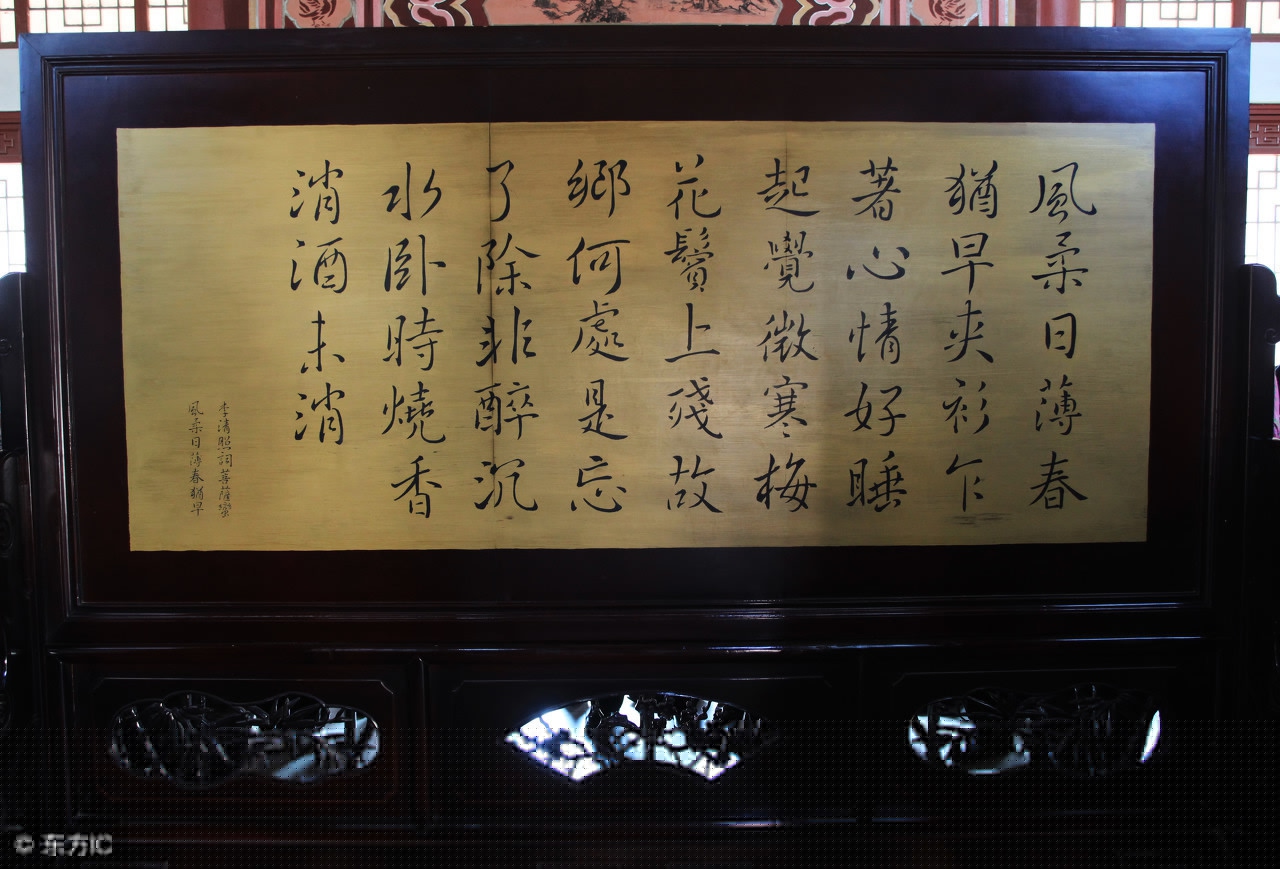 風柔日薄春
猶早夾衫乍
著心情好睡
起覺微寒梅
花鬢上殘故
鄉何處是忘
了除非醉沉
水卧時燒香
消酒未消
李清照詞菩薩蠻
風柔日薄春猶早
© 东方IC